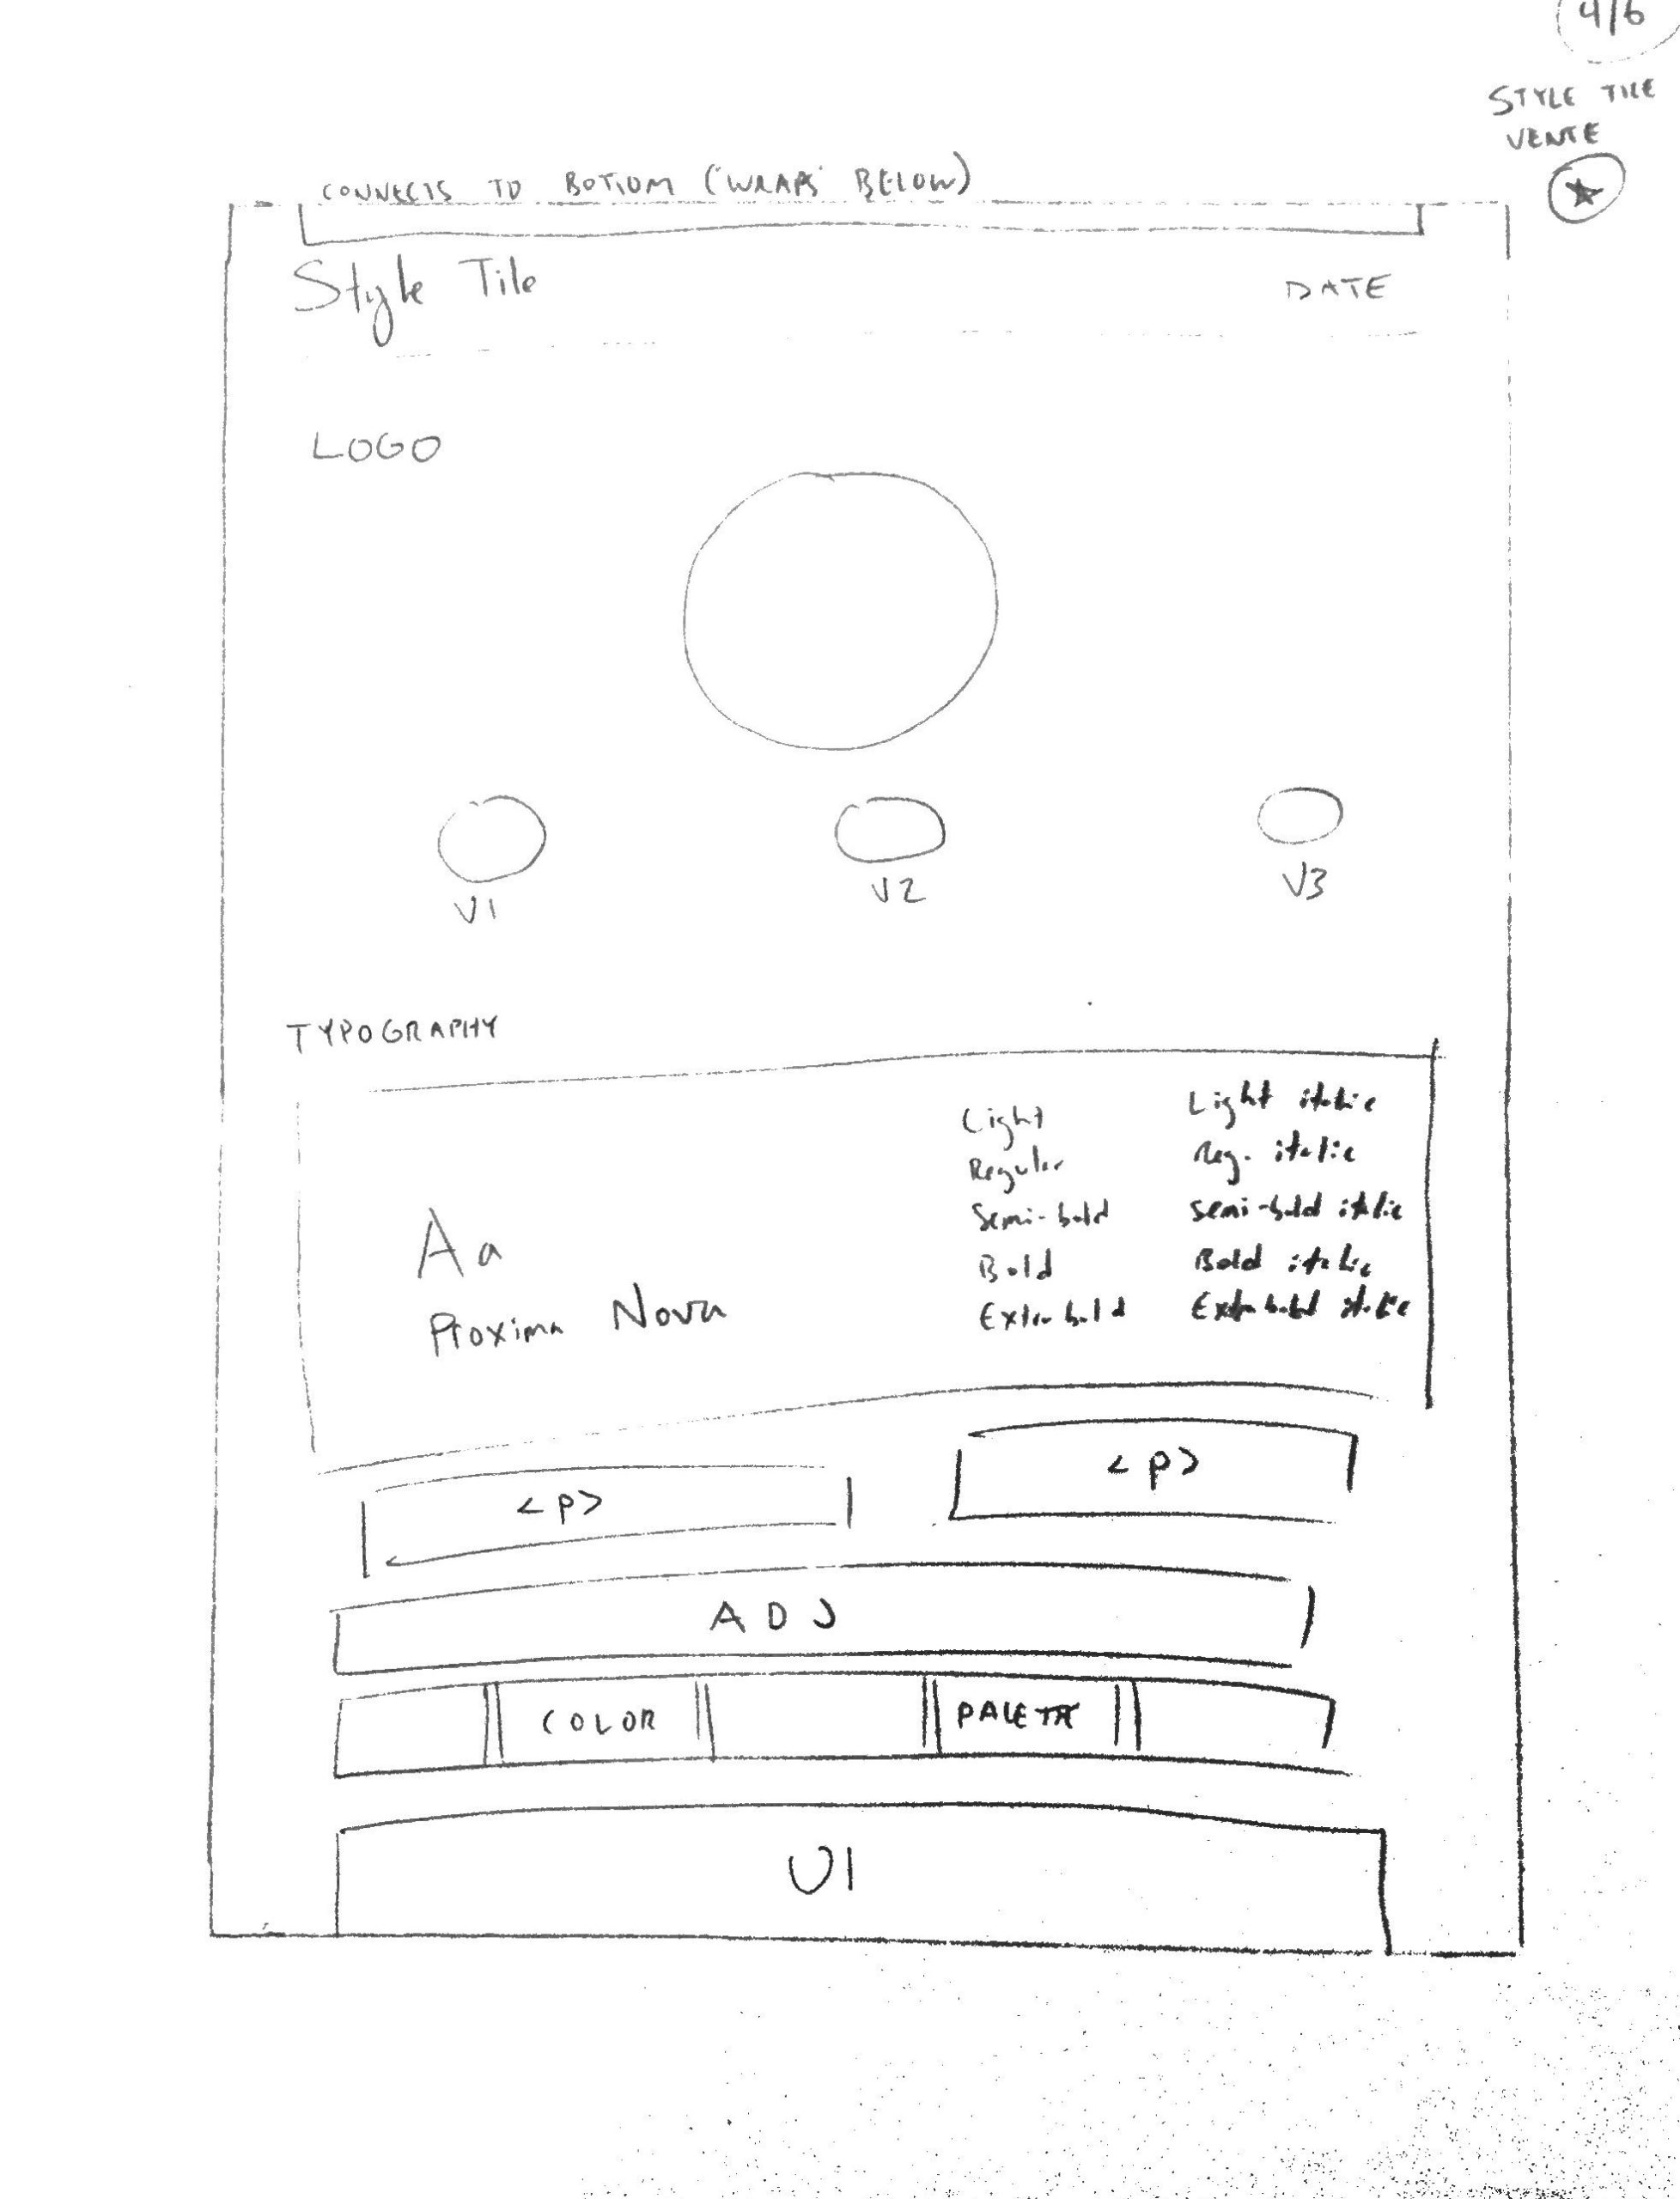 4/6
STYLE TILE
VENTE
CONNECTS TO BOTTOM ("WRAPS" BELOW)
Style Tile
DATE
LOGO
V1
V2
V3
TYPOGRAPHY
Light
Light italic
Regular
Reg. italic
Semi-bold
semi-bold italic
Bold
Bold italic
Extra bold
Extra bold italic
Aa
Proxima Nova
<p>
<p>
ADJ
COLOR
PALETTE
UI